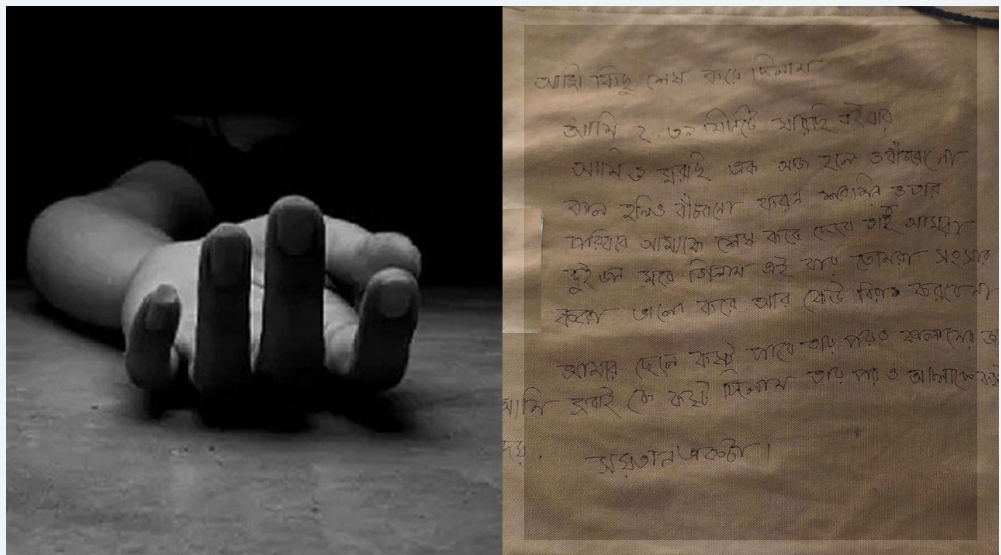 আমি কিছু শেষ করে দিলাম
আমি ২.৩০ মিনিটে মারছি এইবার
আমি ও মরছি এক আজ হলে ও বাঁচবো না
কাল হলিও বাঁচবনো কারন শারমিন ও তার
পরিবার আমাকে শেষ করে দেবে তাই আমরা
দুই জন মরে গিলাম এই বার তোমরা সংসার
করো ভালো করে আর কেউ বিরক্ত করবেনা
আমার ছেলে কষ্ট পাবে তার পরও
আমি সবাই কে কষ্ট দিলাম তার পর ও
দেয়.
সয়তান একটা।